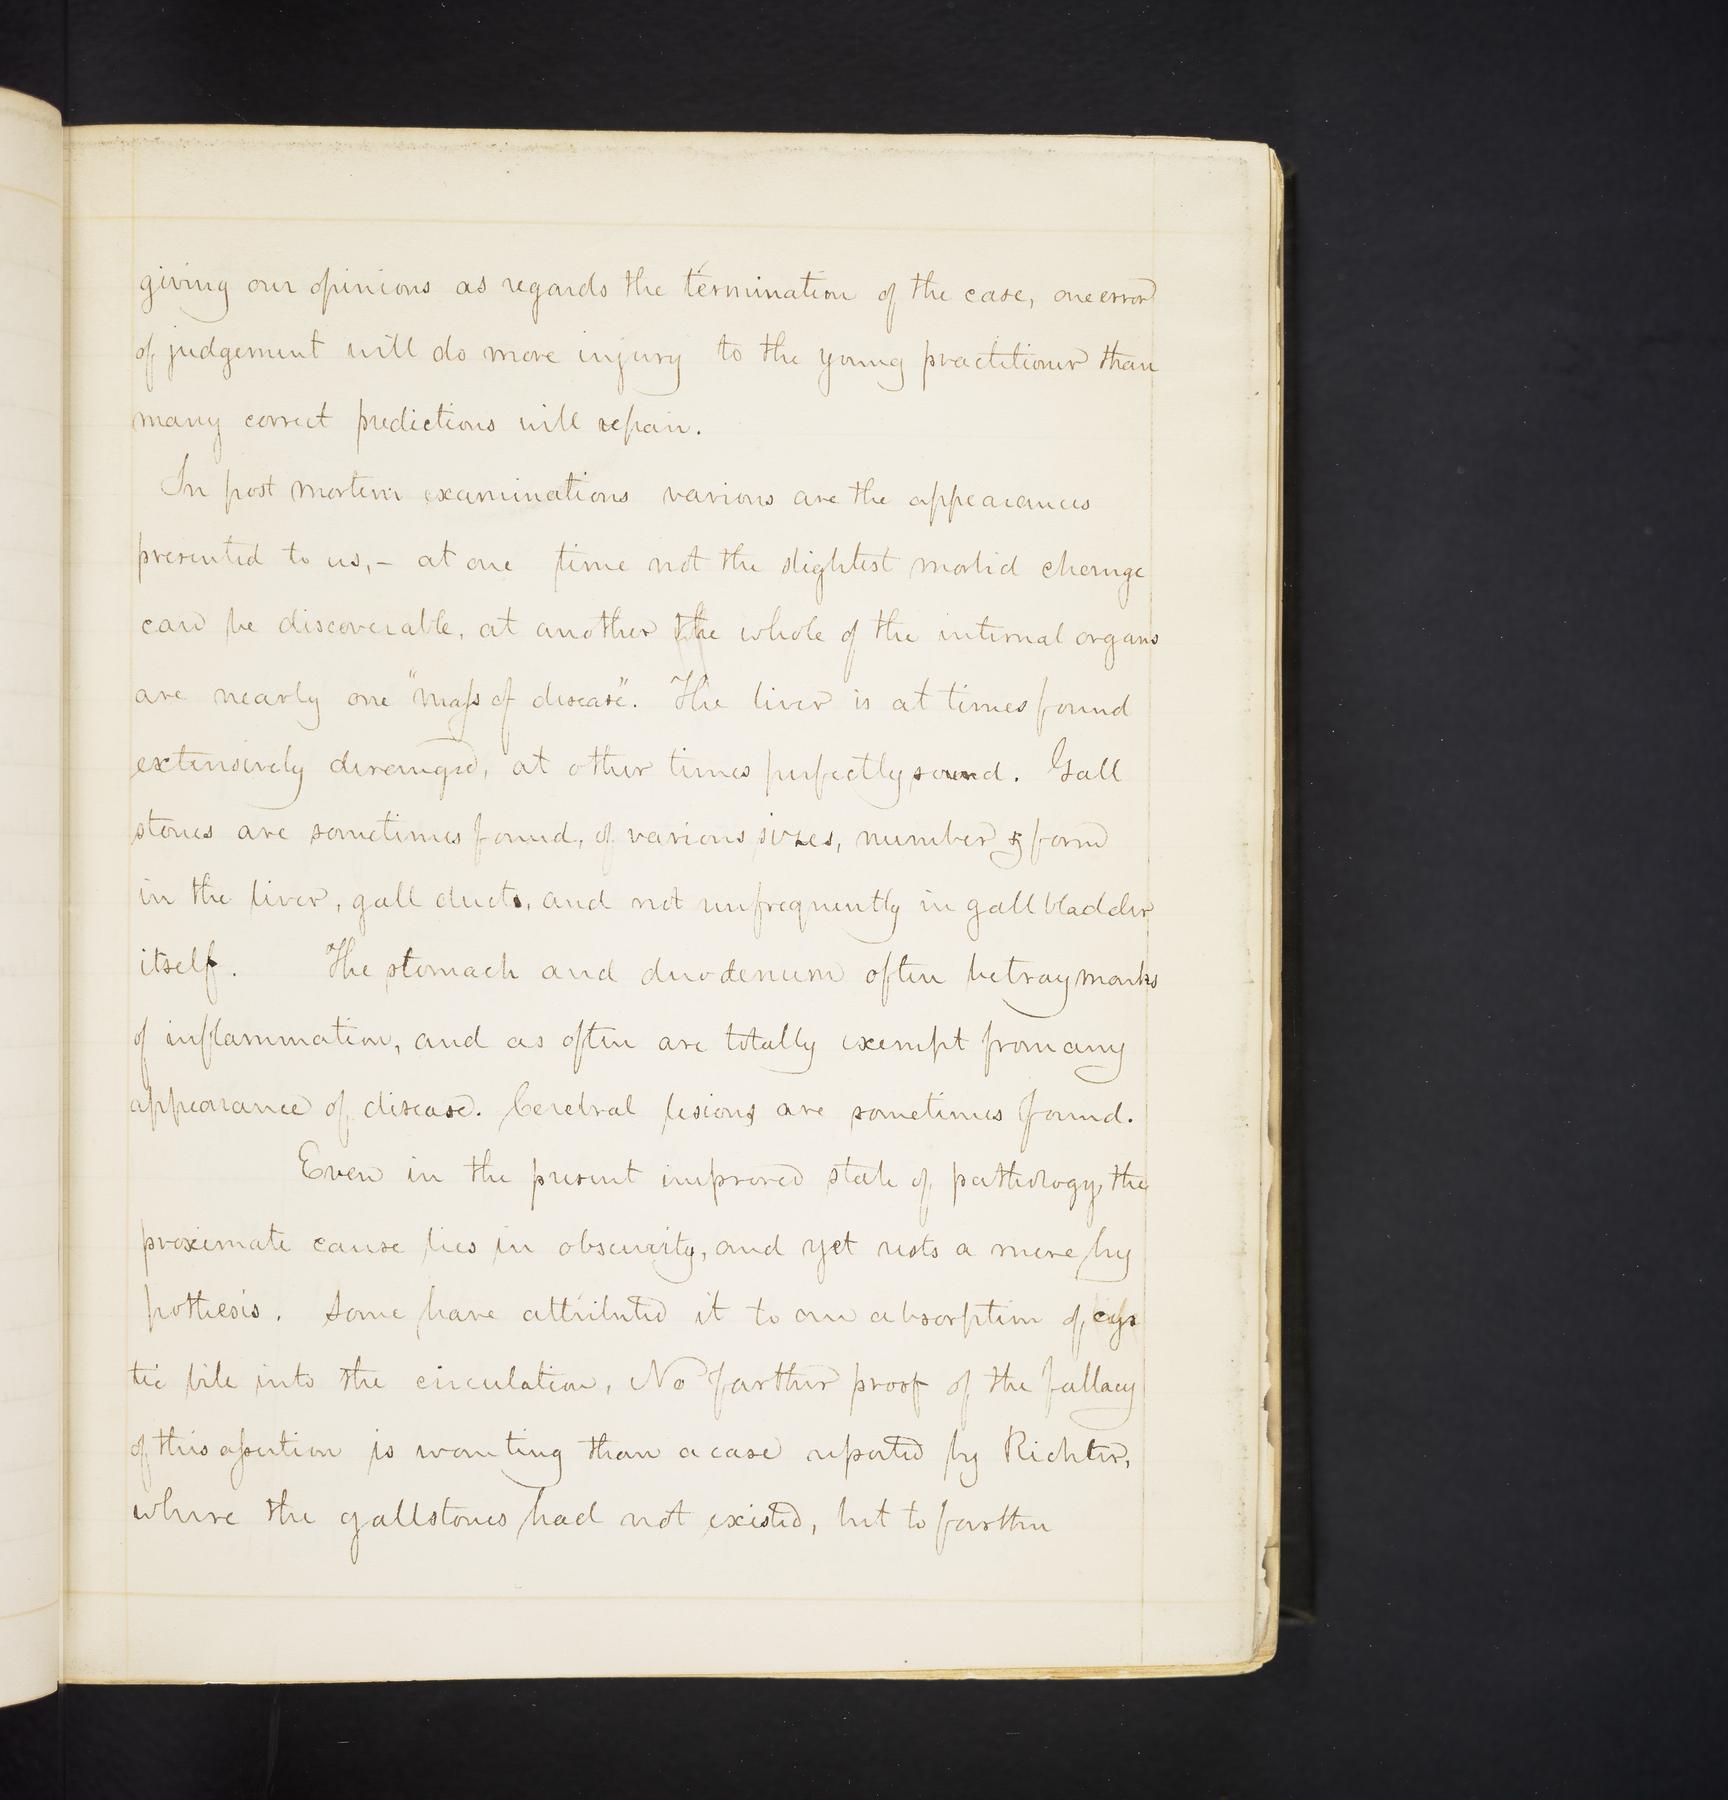 giving our opinions as regards the termination of the case, one error
of judgement will do more injury to the young practitioner than
many correct predictions will repair.
In post mortem examinations various are the appearances
presented to us,- at one time not the slightest morbid change
can be discoverable, at another the whole of the internal organs
are nearly one "mass of disease". The liver is at times found
extensively deranged, at other times perfectly sound. Gall
stones are sometimes found, of various sizes, number & form
in the liver, gall ducts, and not unfrequently in gall bladder
itself. The stomach and duodenum often betray marks
of inflammation, and as often are totally exempt from any
appearance of disease. Cerebral lesions are sometimes found.
Even in the present improved state of pathology, the
proximate cause lies in obscurity, and yet rests a mere hy
pothesis. Some have attributed it to an absorption of cys
tic bile into the circulation, No farther proof of the fallacy
of this assertion is wanting than a case reported by Richter,
where the gallstones had not existed, but to farther